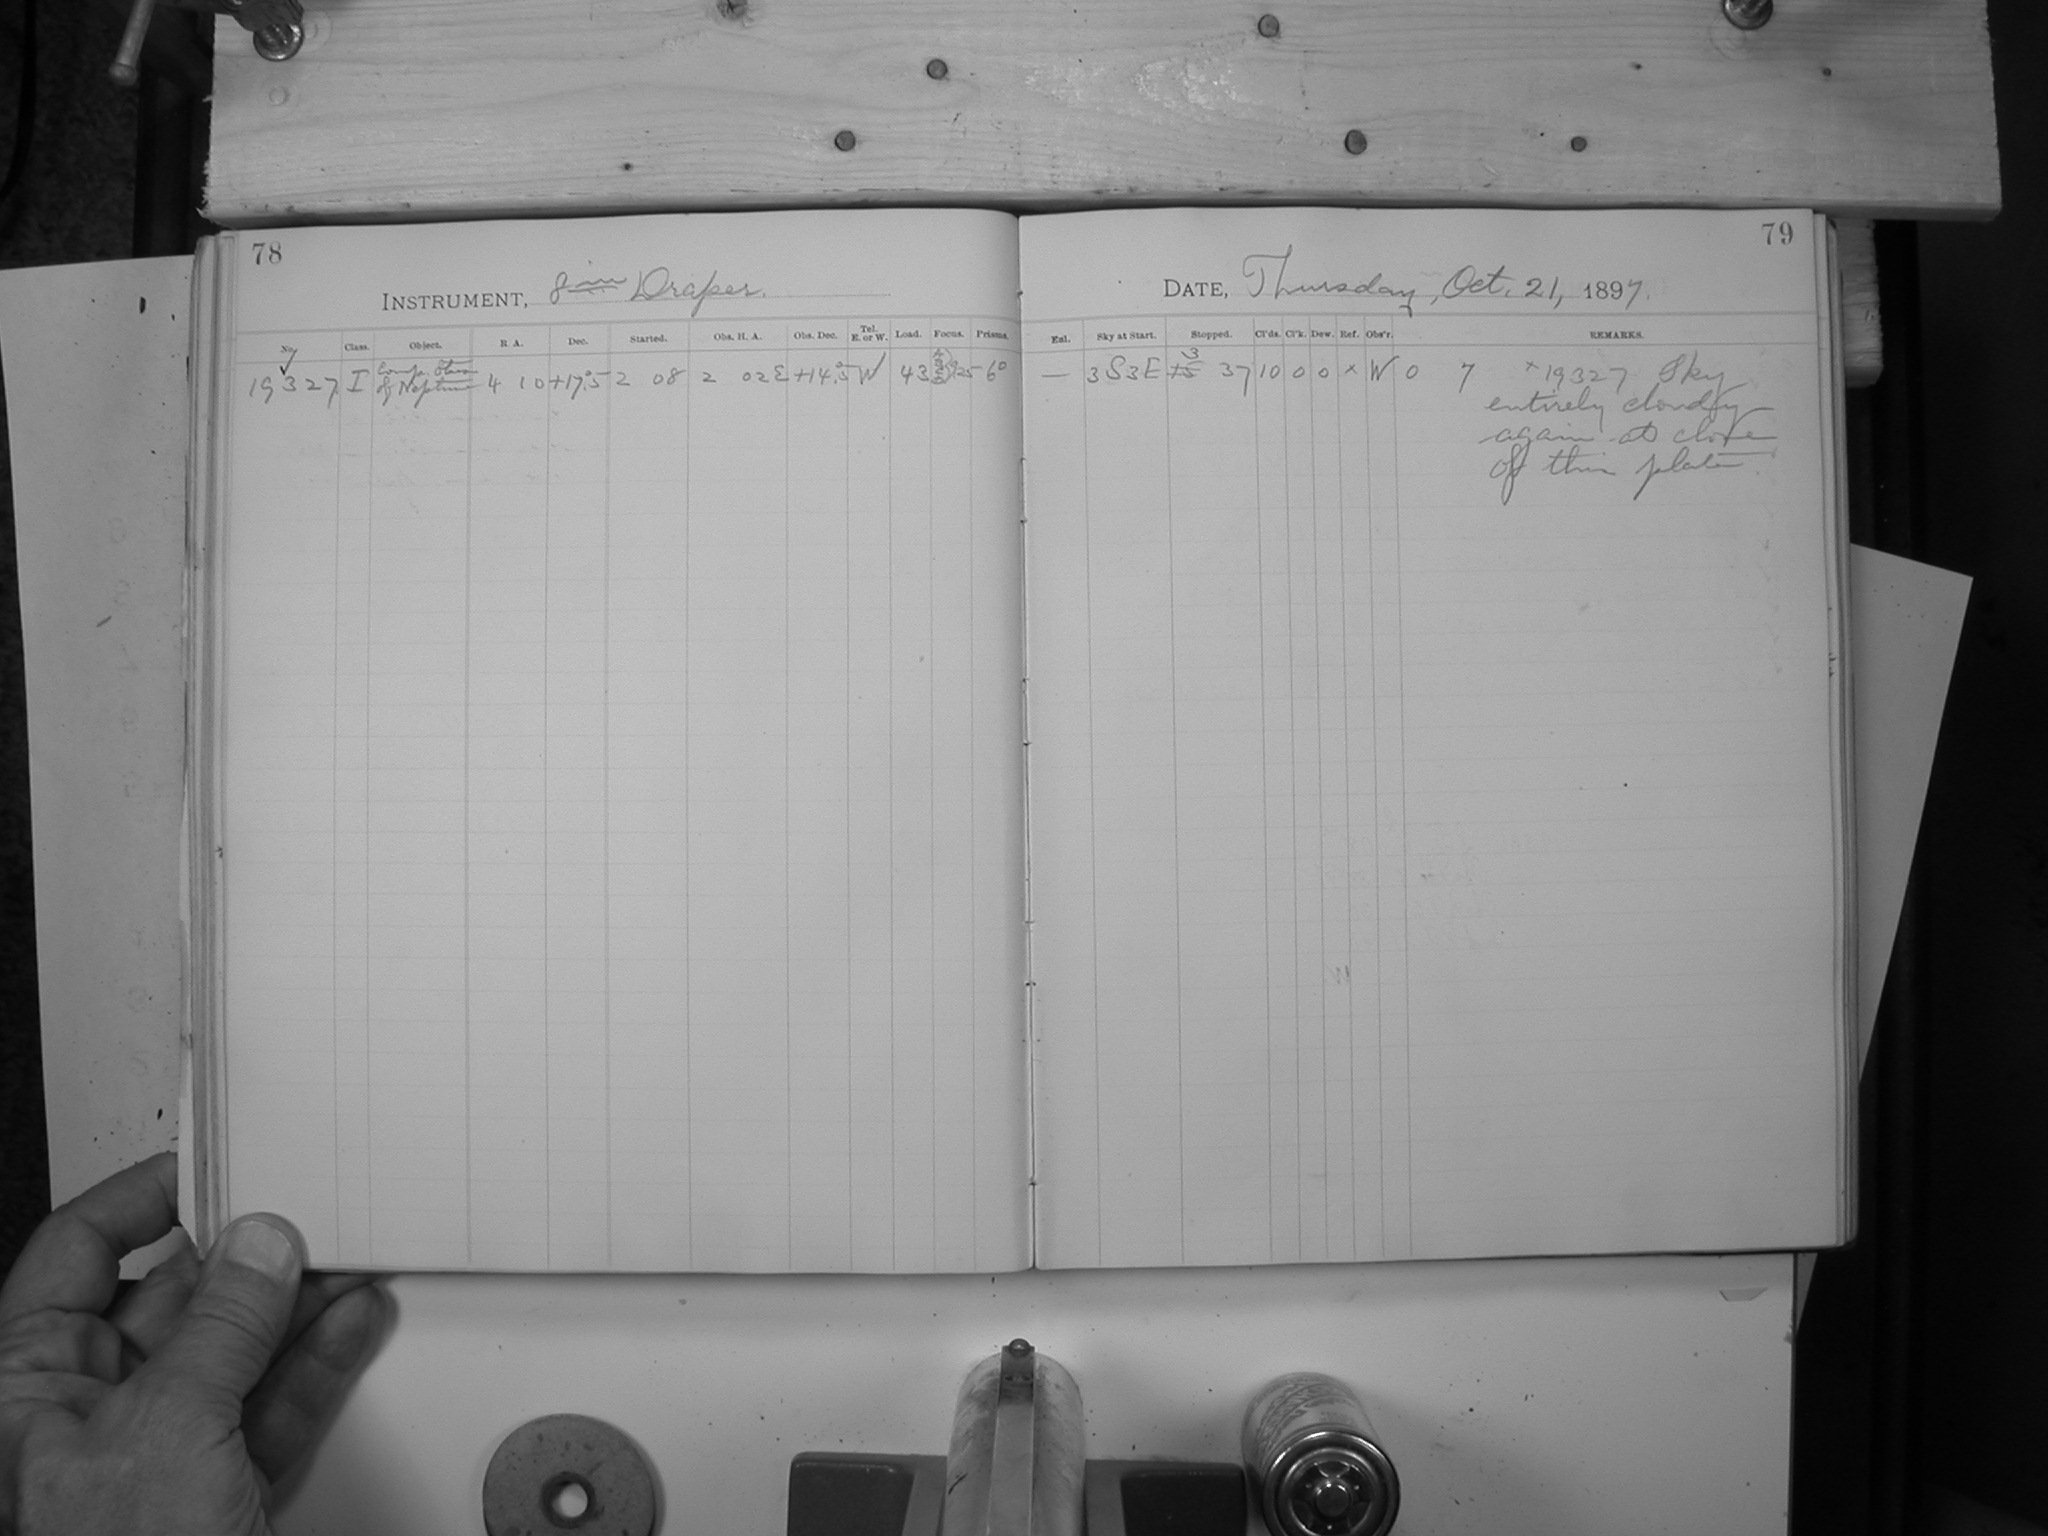 78
79
INSTRUMENT, 8 in Draper.
DATE, Thursday, Oct. 21, 1897.
No. Class. Object. R A. Dec. Started. Obs. H. A. Obs. Dec. Tel. E. or W. Load. Focus. Prisms.
Exl. Sky at Start. Stopped. Cl'ds. Cl'k. Dew. Ref. Obs'r. REMARKS.
19327 I Comp. Stars
of Neptune 4 10 +17.°5 2 08 2 02 E +14.°5 W 43 6°
— 3 S 3 E 3 37 10 0 0 × W 0 7 ×19327 Sky
entirely cloudy
again at close
of this plate.